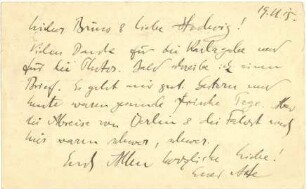 19.11.5.
Lieber Bruno & liebe Hedwig!
Vielen Dank für die Karte und
für die Photos. Bald schreibe ich einen
Brief. Es geht mir gut. Gestern und
heute waren schöne Tage. Aber
die Abreise von Berlin & die Fahrt nach
hier waren schwer, schwer.
Euch Allen herzliche Grüße!
Euer